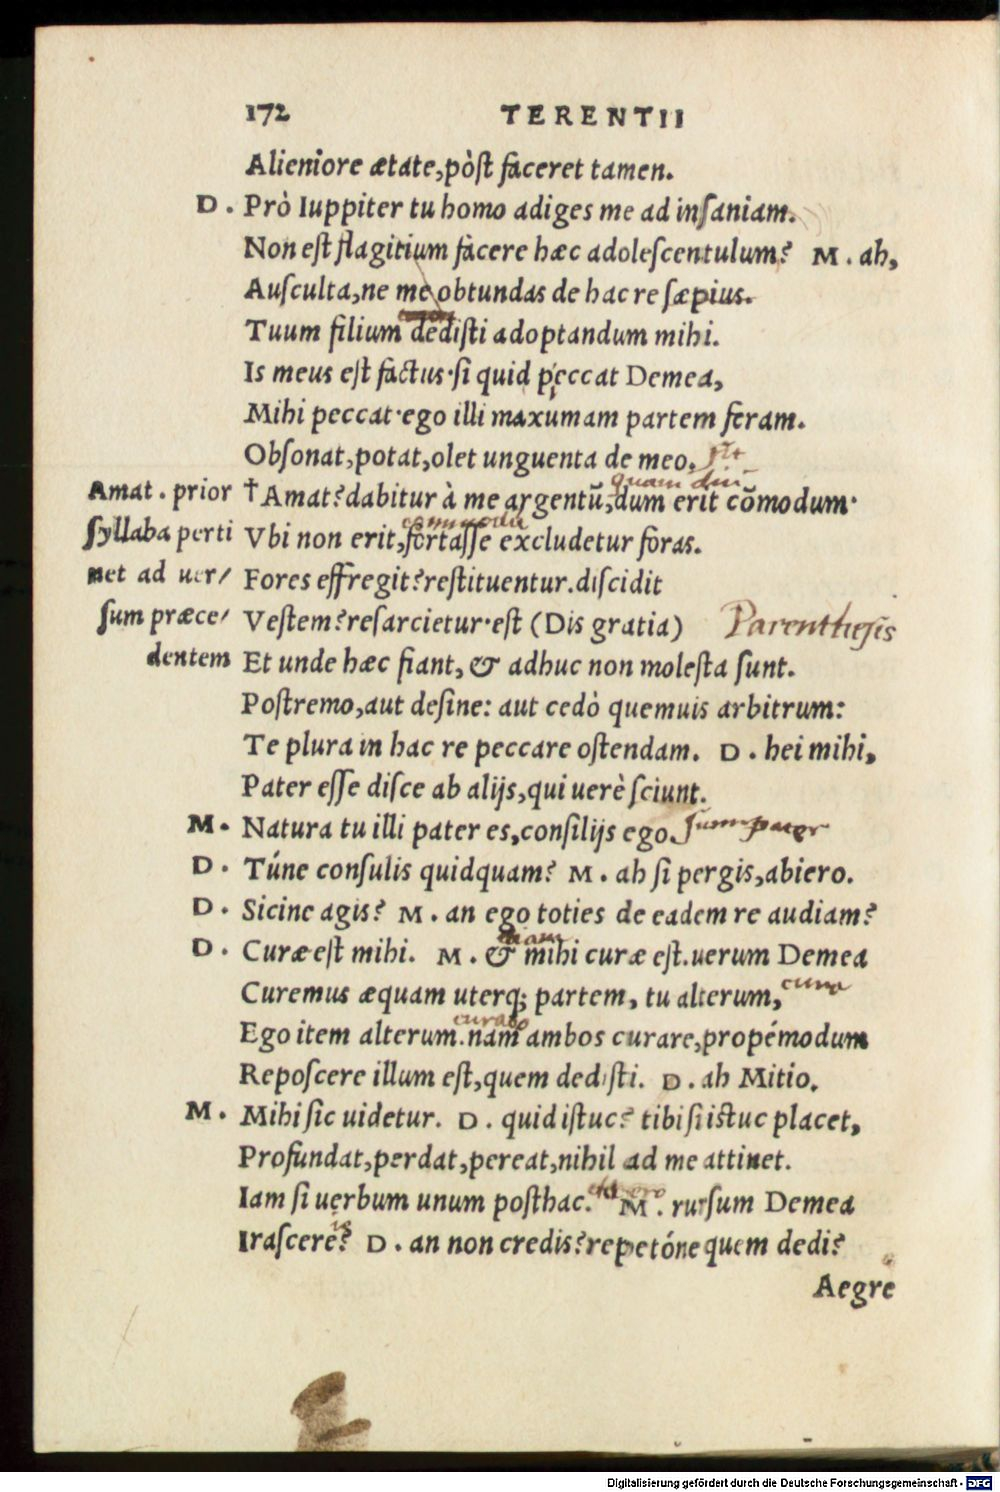 172 TERENTII
Alieniore ætate, pòst faceret tamen.
D. Prò Iuppiter tu homo adiges me ad insaniam.
Non est flagitium facere hæc adolescentulum? M. ah,
Ausculta, ne me obtundas de hac re sæpius.
Tuum filium dedisti adoptandum mihi.
Is meus est factus·si quid peccat Demea,
Mihi peccat·ego illi maxumam partem feram.
Obsonat, potat, olet unguenta de meo. sit
quam diu
Amat. prior †Amat? dabitur à me argentū, dum erit cōmodum·
commodū
syllaba perti Vbi non erit, fortasse excludetur foras.
net ad uer/ Fores effregit? restituentur. discidit
sum præce/ Vestem? resarcietur·est (Dis gratia) Parenthesis
dentem Et unde hæc fiant, & adhuc non molesta sunt.
Postremo, aut desine: aut cedò quemuis arbitrum:
Te plura in hac re peccare ostendam. D. hei mihi,
Pater esse disce ab alijs, qui uerè sciunt.
M. Natura tu illi pater es, consilijs ego. sum pater
D. Túne consulis quidquam? M. ah si pergis, abiero.
D. Sicine agis? M. an ego toties de eadem re audiam?
D. Curæ est mihi. M. & mihi curæ est. uerum Demea
Curemus æquam uterq; partem, tu alterum, cura
curabo
Ego item alterum. nam ambos curare, propémodum
Reposcere illum est, quem dedisti. D. ah Mitio.
M. Mihi sic uidetur. D. quid istuc? tibi si istuc placet,
Profundat, perdat, pereat, nihil ad me attinet.
Iam si uerbum unum posthac. M. rursum Demea
is
Irascere? D. an non credis? repetóne quem dedi?
Aegre
Digitalisierung gefördert durch die Deutsche Forschungsgemeinschaft - DFG